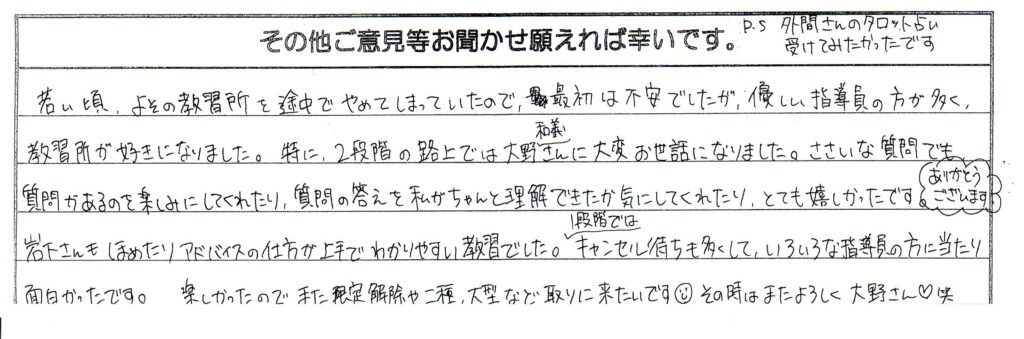 その他ご意見等お聞かせ願えれば幸いです。
P.S 外間さんのタロット占い
受けてみたかったです
若い頃、よその教習所を途中でやめてしまっていたので、最初は不安でしたが、優しい指導員の方が多く、
教習所が好きになりました。特に、2段階の路上では大野和義さんに大変お世話になりました。ささいな質問でも
質問があるのを楽しみにしてくれたり、質問の答えを私がちゃんと理解できたか気にしてくれたり、とても嬉しかったです ありがとうございます
岩下さんもほめたりアドバイスの仕方が上手でわかりやすい教習でした。1段階ではキャンセル待ちも多くして、いろいろな指導員の方に当たり
面白かったです。 楽しかったのでまた限定解除や二種、大型など取りに来たいです☺その時はまたよろしく大野さん♡笑